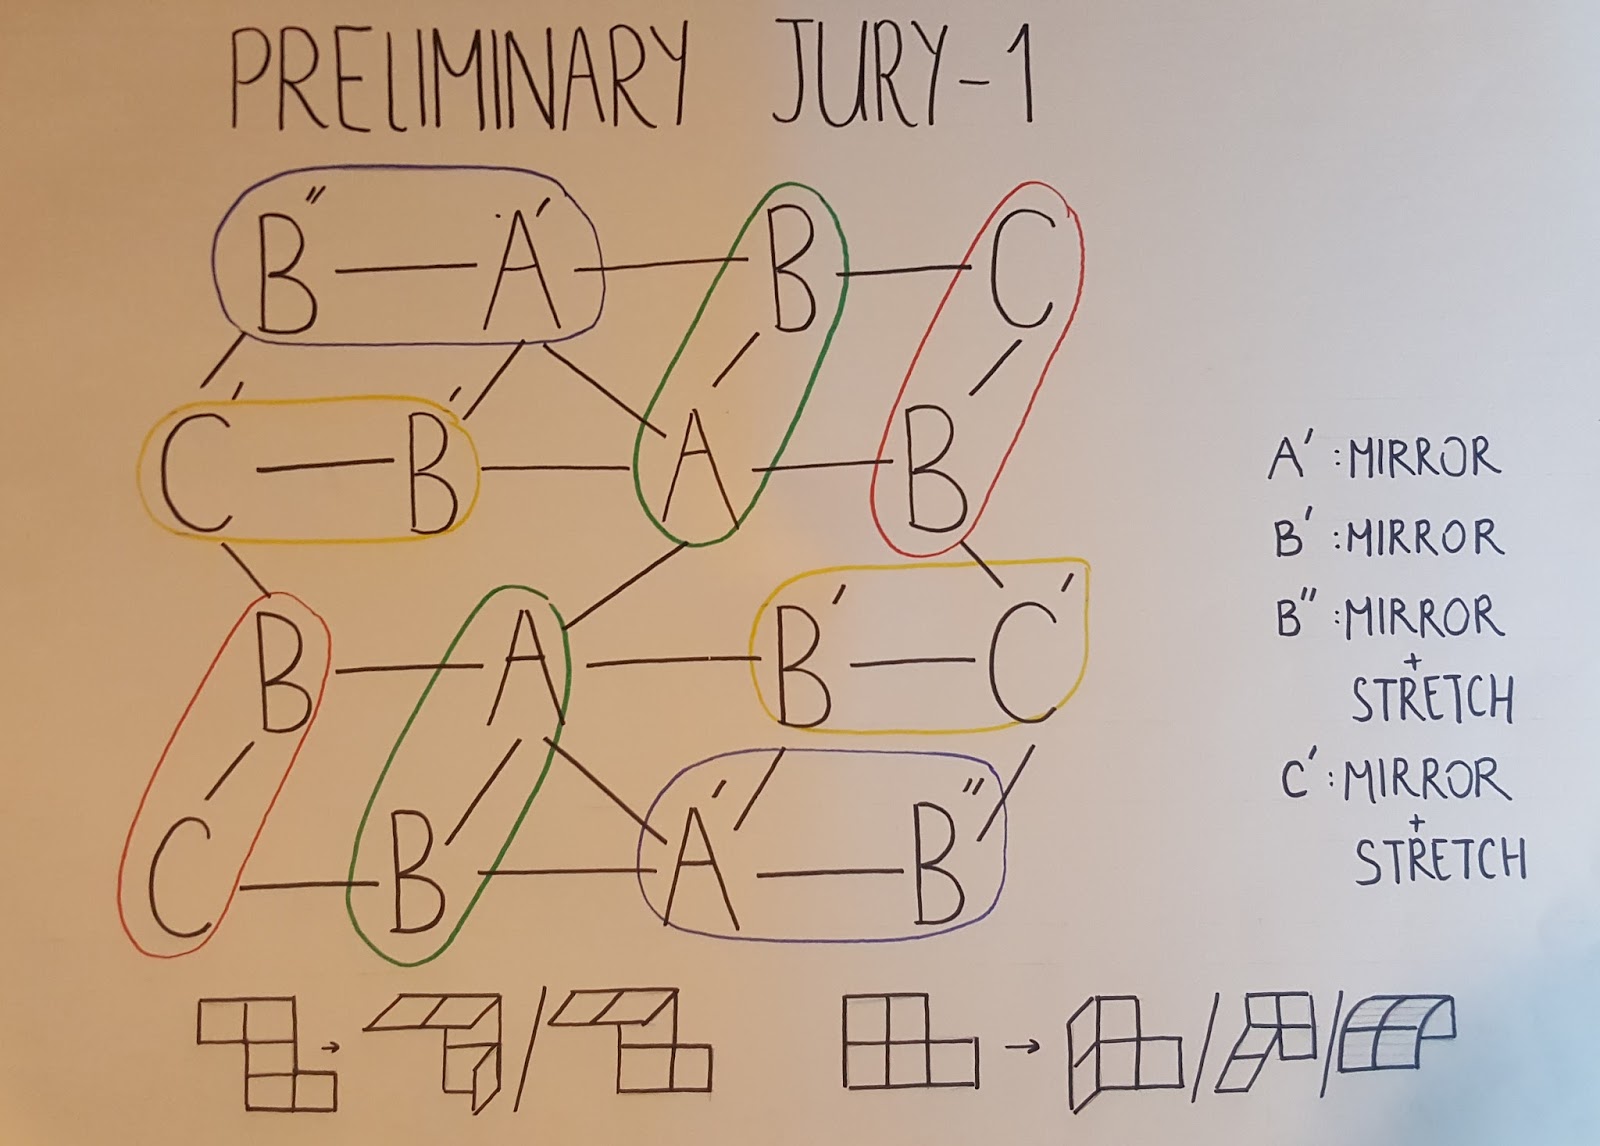 PRELIMINARY JURY-1
B" A' B C
C' B' A B
B A B' C'
C B A' B"
A' : MIRROR
B' : MIRROR
B" : MIRROR
+
STRETCH
C' : MIRROR
+
STRETCH